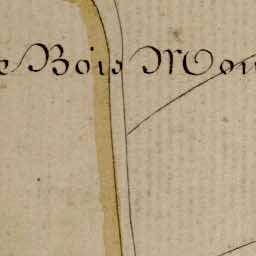 e Bois Mou